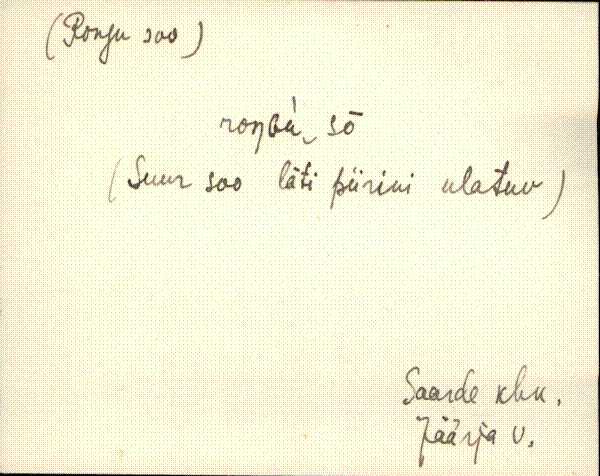 (Rongu soo)
roŋɢù‿sō
(Suur soo läti piirini ulatuv)
Saarde khk.
Jäärja v.